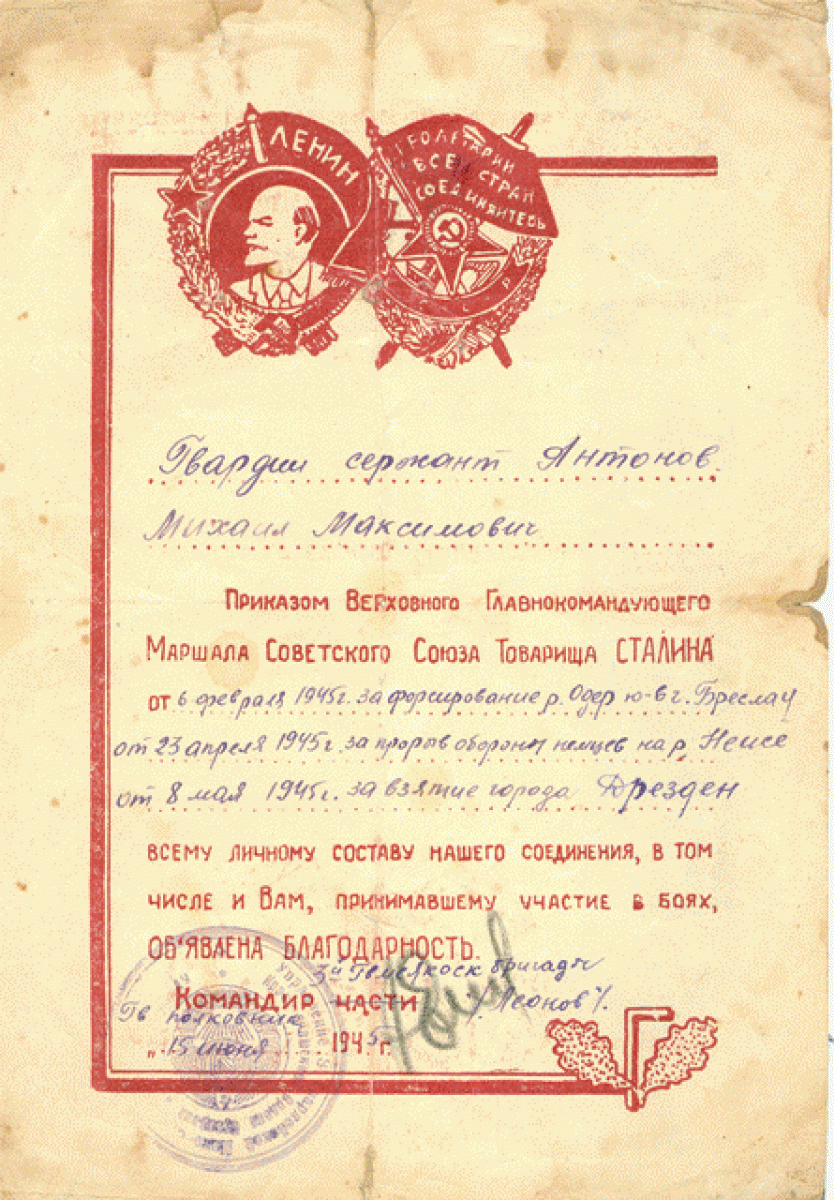 ЛЕНИН
ПРОЛЕТАРИИ
ВСЕХ СТРАН
СОЕДИНЯЙТЕСЬ
Гвардии сержант Антонов
Михаил Максимович
ПРИКАЗОМ ВЕРХОВНОГО ГЛАВНОКОМАНДУЮЩЕГО
МАРШАЛА СОВЕТСКОГО СОЮЗА ТОВАРИЩА СТАЛИНА
от 6 февраля 1945г. за форсирование р. Одер ю-в г. Бреслау
от 23 апреля 1945г. за прорыв обороны немцев на р. Нейсе
от 8 мая 1945г. за взятие города Дрезден
ВСЕМУ ЛИЧНОМУ СОСТАВУ НАШЕГО СОЕДИНЕНИЯ, В ТОМ
ЧИСЛЕ И ВАМ, ПРИНИМАВШЕМУ УЧАСТИЕ В БОЯХ,
ОБ'ЯВЛЕНА БЛАГОДАРНОСТЬ.
бригады
КОМАНДИР ЧАСТИ /Леонов/.
Гв полковник
„15 июня 1945 г.